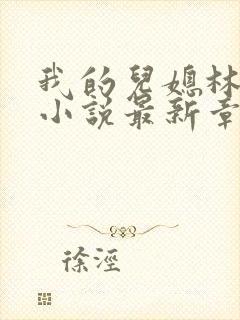 我的兒媳林
小說最新章
徐涇